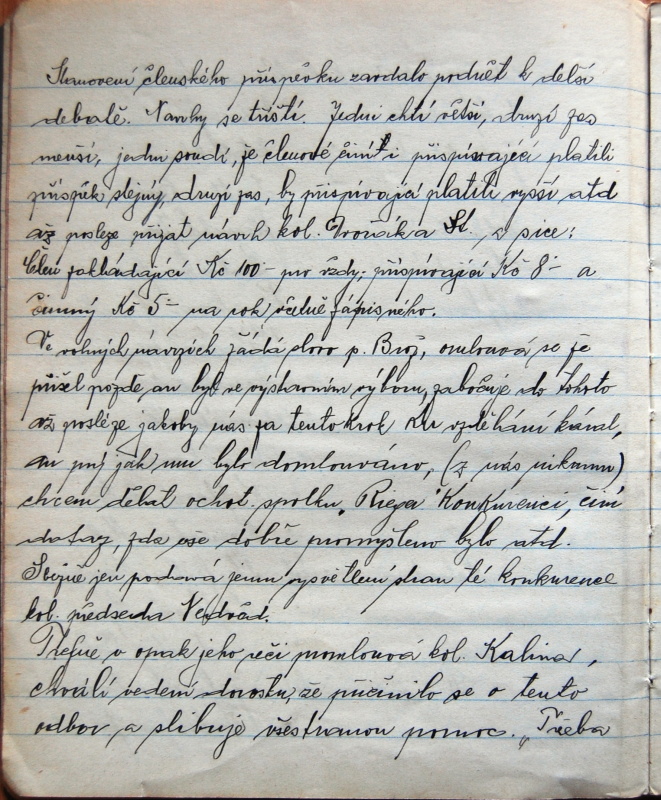 Stanovení členského příspěvku zavdalo podnět k delší
debatě. Navrhy se tříští. Jedni chtí větší, druzí zas
menší, jedni soudí, že členové činí i přispívající platili
příspěk stejný, druzí zas, by přispívající platili vyšší atd
až posléze přijat navrh kol. Dvořáka St. a sice:
Člen zakládající Kč 100– pro vždy, přispívající Kč 8– a
činný Kč 5– na rok včetně zápisného.
Ve volných návrzích žádá slovo p. Brož, omlouvá se že
přišel pozdě an byl ve výstavním výboru, zabočuje do tohoto
až posléze jakoby nás za tento krok ku vzdělání káral,
an prý jak mu bylo domlouváno, (z nás nikomu)
chcem dělat ochot. spolku „Rieger" Konkurenci, činí
dotaz, zda vše dobře promyšleno bylo atd.
Stejně jen podává jemu vysvětlení stran té konkurence
kol. předseda
Trefně v opak jeho řeči promlouvá kol. Kalina,
chválí vedení dorostu, že přičinilo se o tento
odbor a slibuje všestranou pomoc. „Třeba